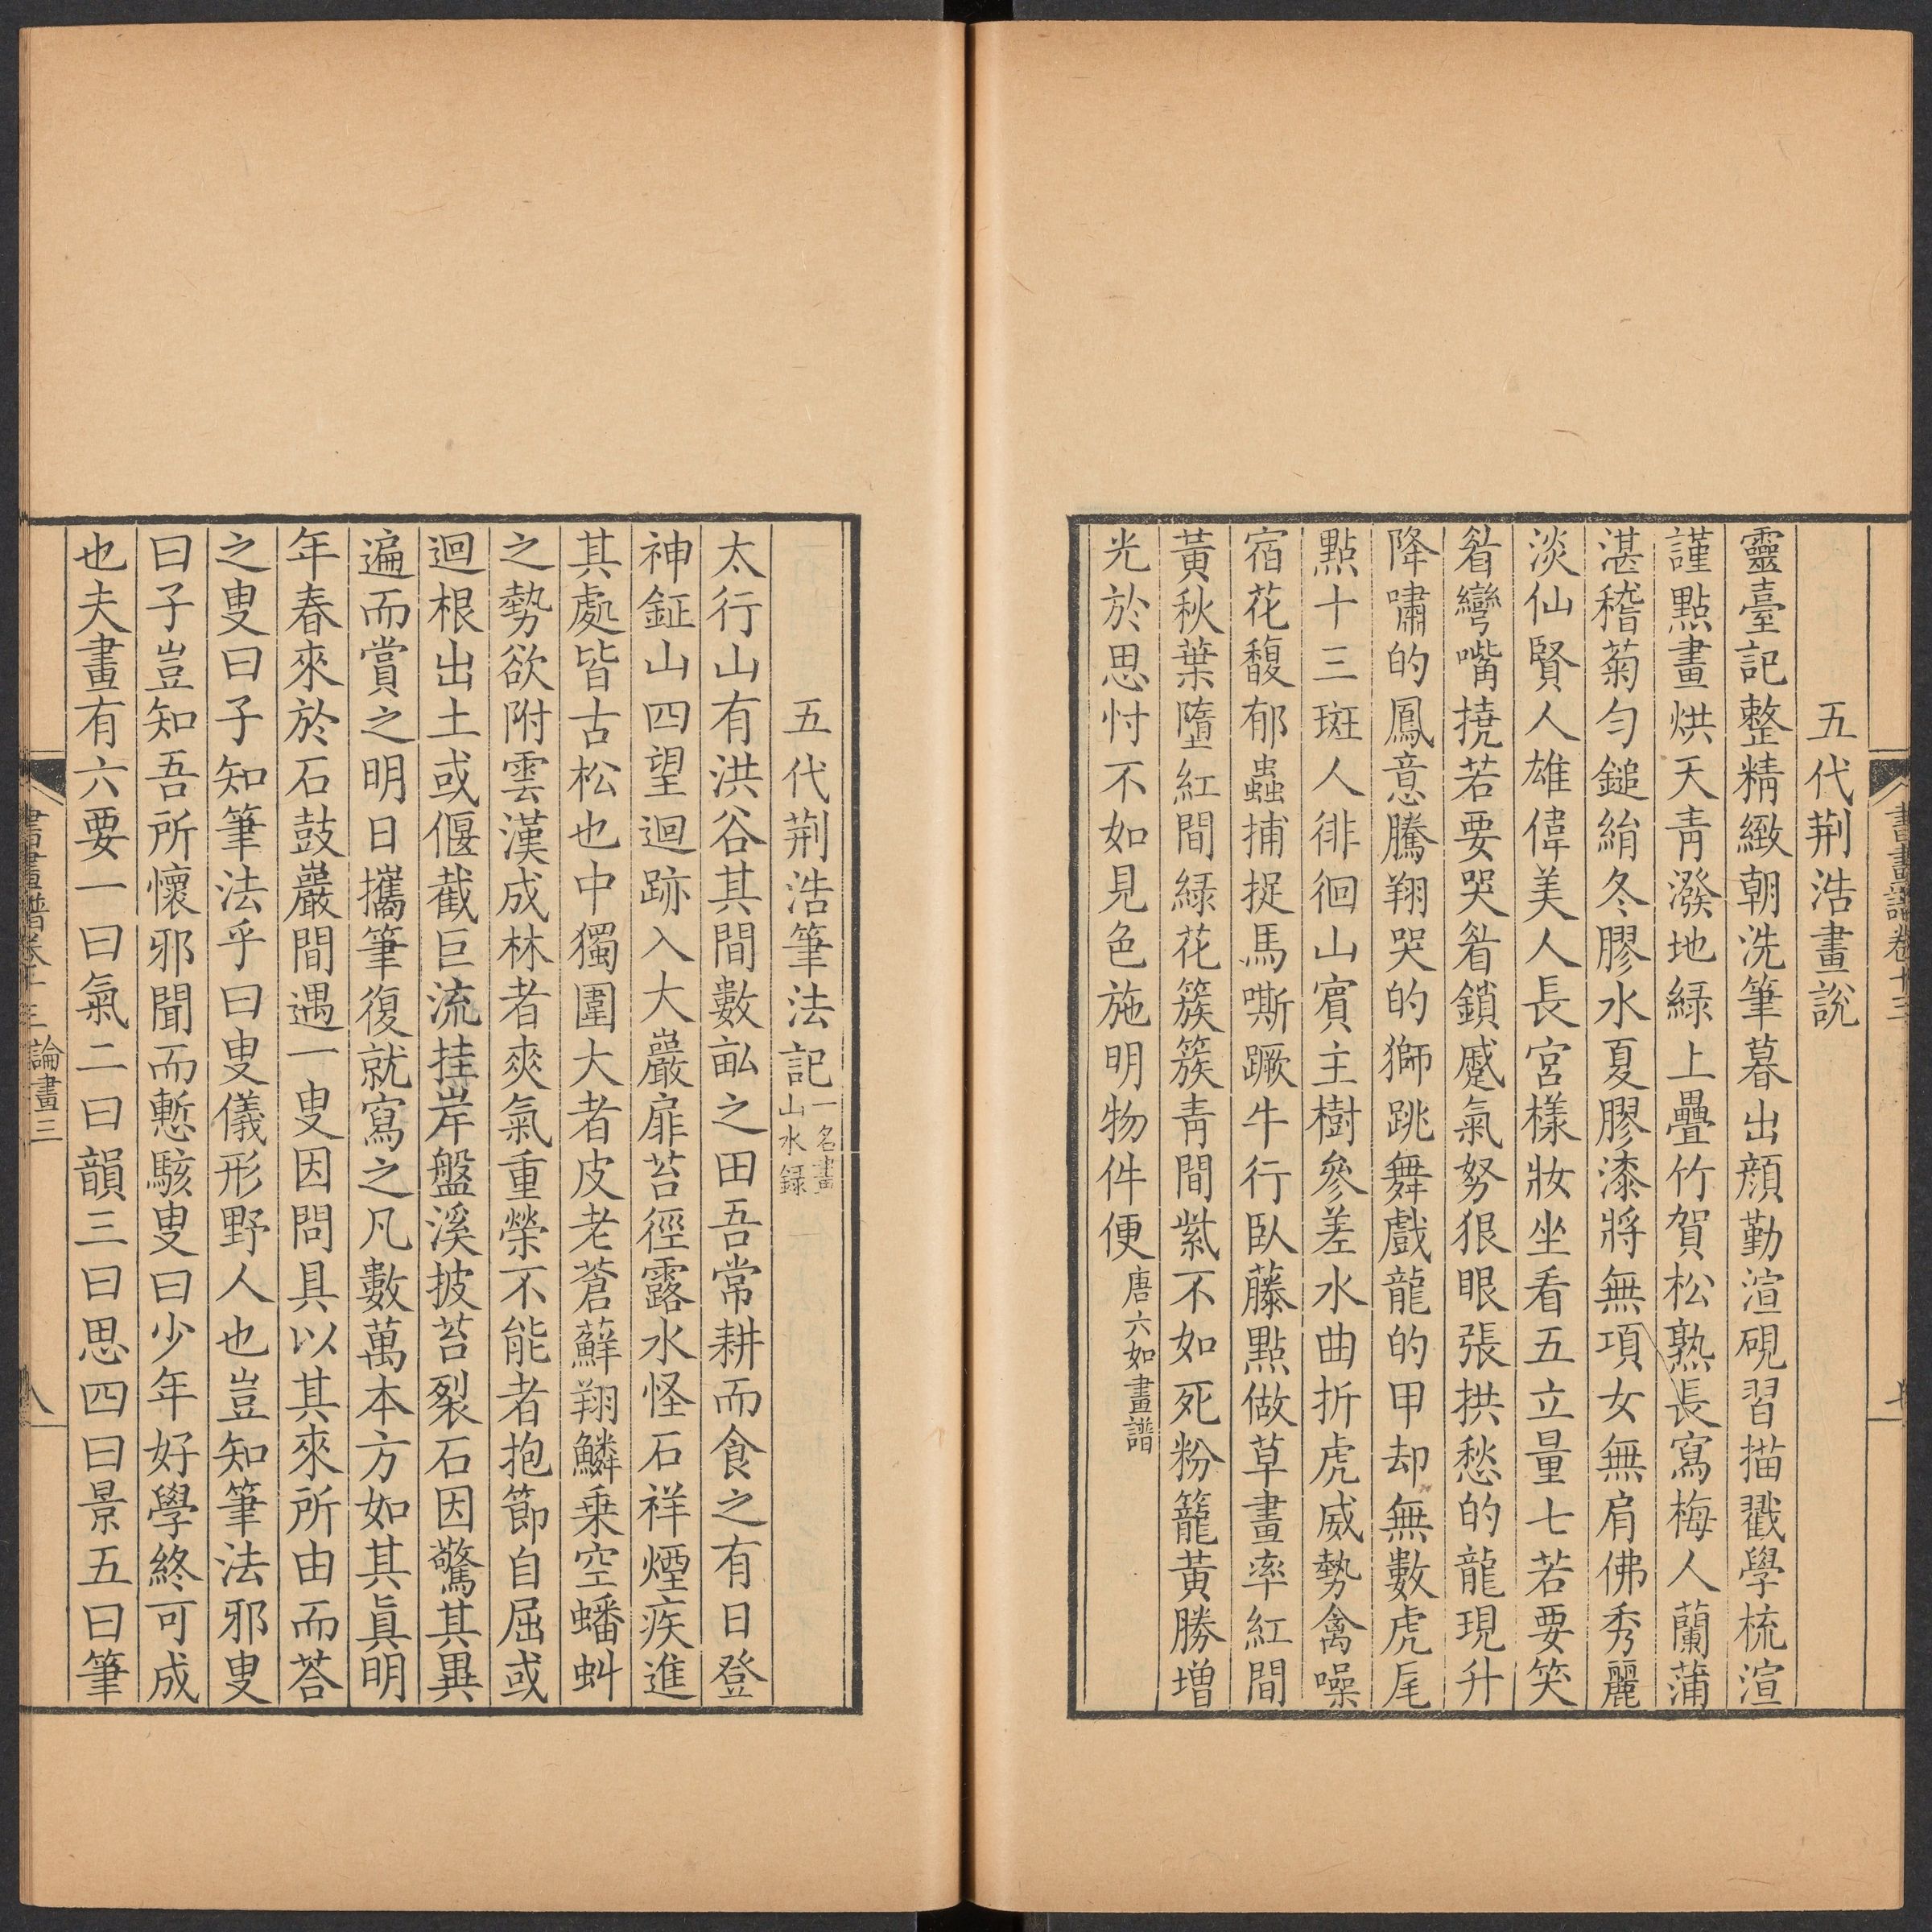 五代荆浩畫說
靈臺記整精緻朝洗筆暮出顔勤渲硯習描戳學梳渲
謹點畫烘天青潑地緑上疊竹賀松熟長寫梅人蘭蒲
湛稽菊匀鎚絹冬膠水夏膠漆將無項女無肩佛秀麗
淡仙賢人雄偉美人長宮樣妝坐看五立量七若要笑
眉彎嘴撓若要哭眉鎖蹙氣努狠眼張拱愁的龍現升
降嘯的鳳意騰翔哭的獅跳舞戲龍的甲却無數虎尾
點十三斑人徘徊山賓主樹參差水曲折虎威勢禽噪
宿花馥郁蟲捕捉馬嘶蹶牛行臥藤點做草畫率紅間
黃秋葉墮紅間緑花簇簇青間紫不如死粉籠黃勝增
光於思忖不如見色施明物件便唐六如畫譜
五代荆浩筆法記一名畫山水録
太行山有洪谷其間數畝之田吾常耕而食之有日登
神鉦山四望迴跡入大巖扉苔徑露水怪石祥煙疾進
其處皆古松也中獨圍大者皮老蒼蘚翔鱗乗空蟠虯
之勢欲附雲漢成林者爽氣重榮不能者抱節自屈或
迴根出土或偃截巨流挂岸盤溪披苔裂石因驚其異
遍而賞之明日攜筆復就寫之凡數萬本方如其真明
年春來於石鼓巖間遇一叟因問具以其來所由而荅
之叟曰子知筆法乎曰叟儀形野人也豈知筆法邪叟
曰子豈知吾所懷邪聞而慙駭叟曰少年好學終可成
也夫畫有六要一曰氣二曰韻三曰思四曰景五曰筆
書畫譜卷十三 論畫三
八